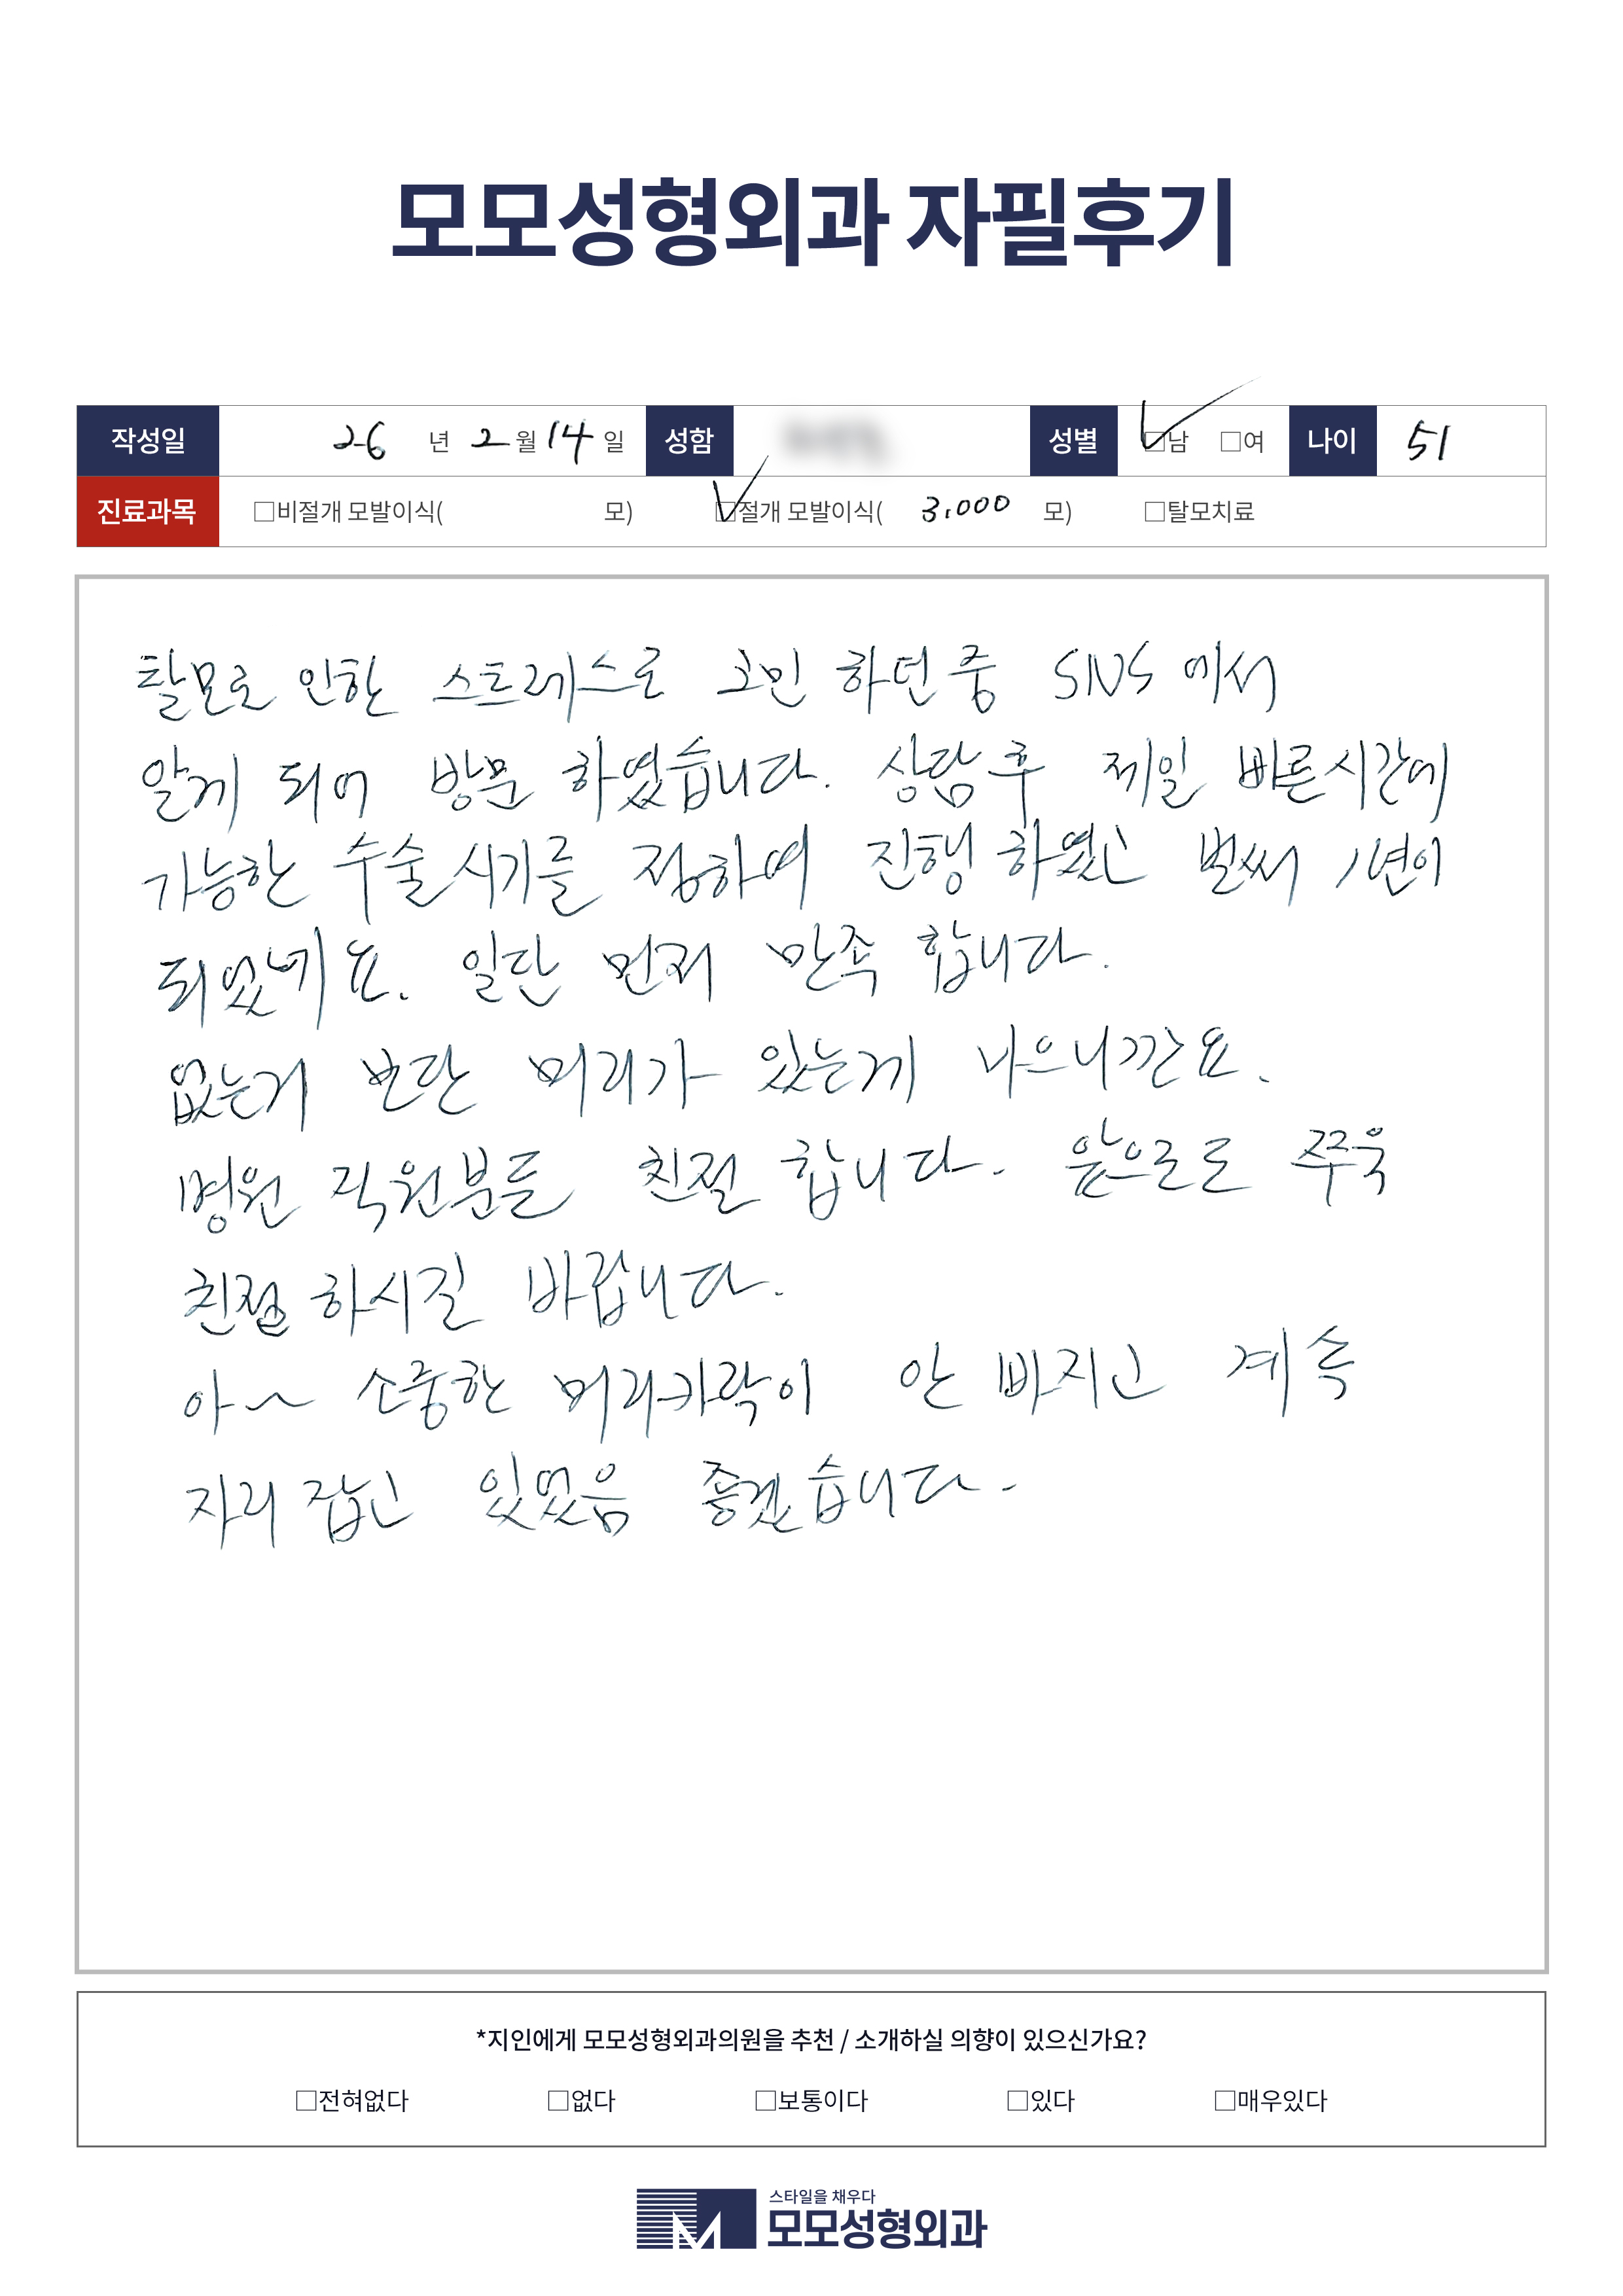 모모성형외과 자필후기
작성일 26 년 2 월 14 일 성함 성별 ☑남 □여 나이 51
진료과목 □비절개 모발이식( 모) ☑절개 모발이식( 3,000 모) □탈모치료
탈모로 인한 스트레스로 고민 하던 중 SNS 에서
알게 되어 방문 하였습니다. 상담 후 제일 빠른시간에
가능한 수술시기를 정하여 진행 하였고 벌써 1년이
되었네요. 일단 먼저 만족 합니다.
없는거 보단 머리가 있는게 나으니깐요.
병원 직원분들 친절 합니다. 앞으로도 쭈욱
친절 하시길 바랍니다.
아~ 소중한 머리카락이 안 빠지고 계속
자리 잡고 있었음 좋겠습니다.
*지인에게 모모성형외과의원을 추천 / 소개하실 의향이 있으신가요?
□전혀없다 □없다 □보통이다 □있다 □매우있다
스타일을 채우다
모모성형외과